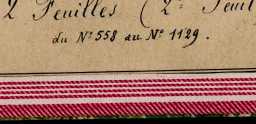 2 Feuilles (2e Feuil
du No 558 au No 1129.